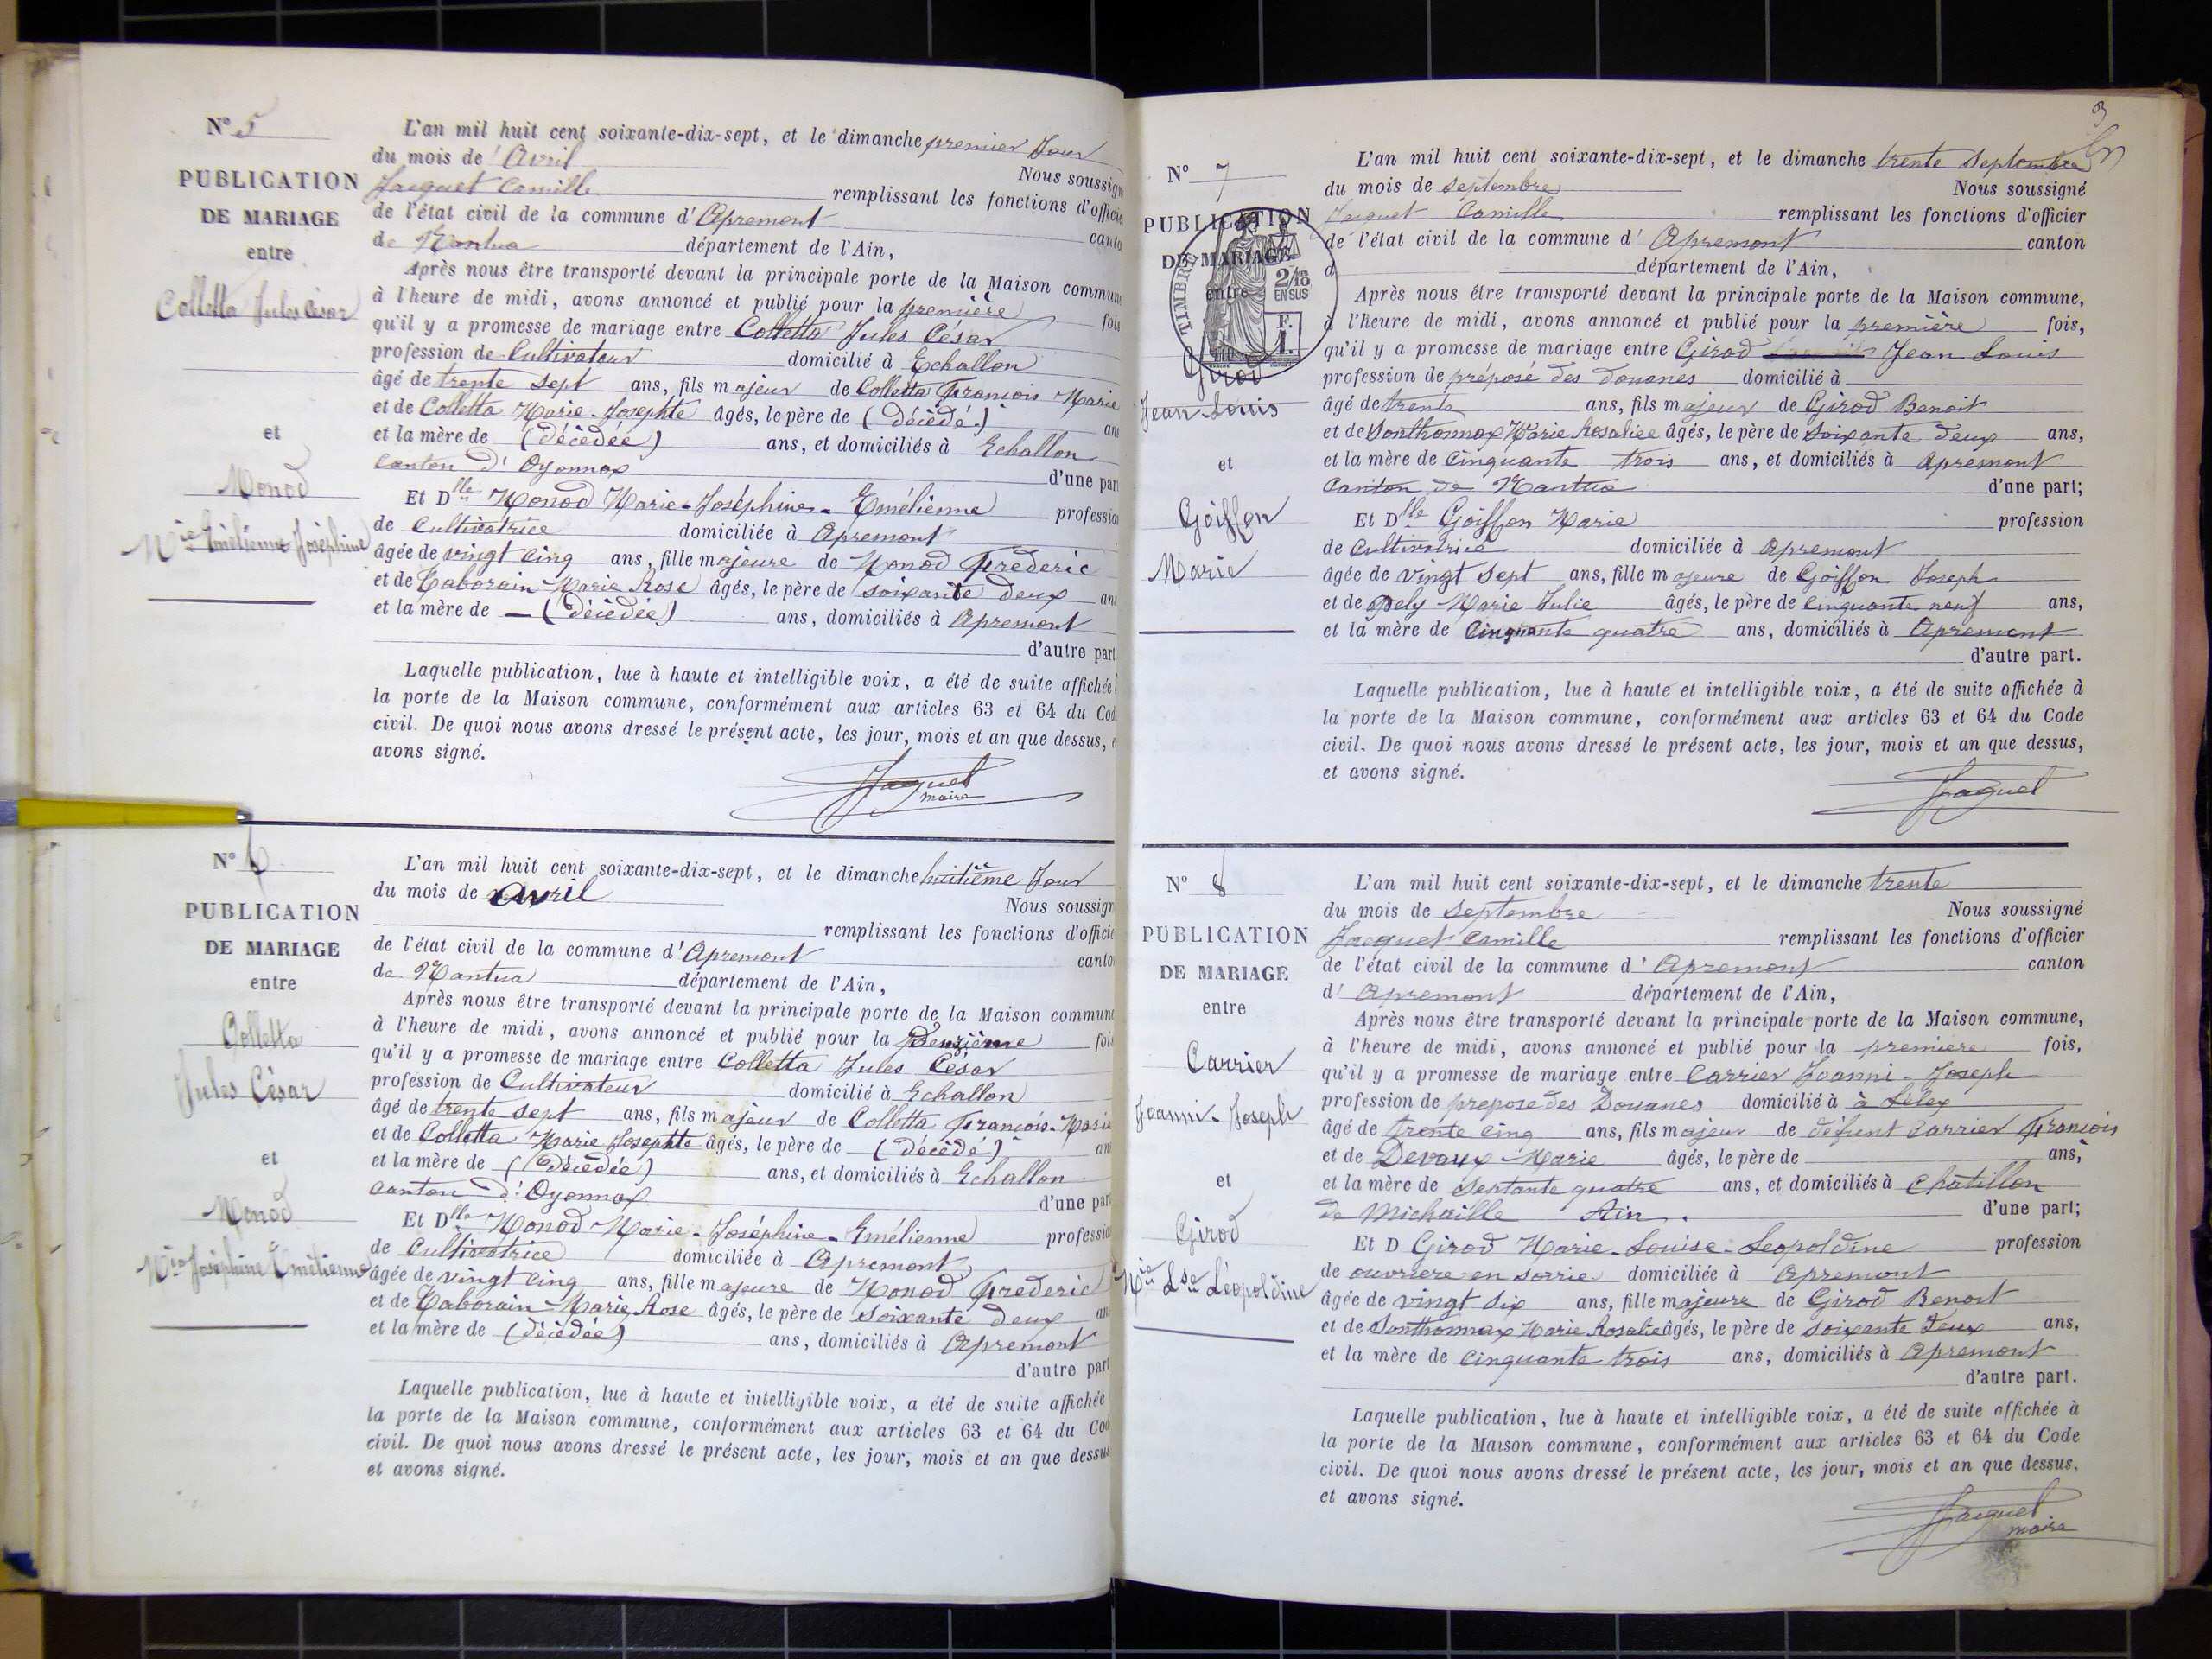 N° 5
PUBLICATION
DE MARIAGE
entre
Colletta Jules César
et
Monod
Mie Emélienne Joséphine
L'an mil huit cent soixante-dix-sept, et le dimanche premier Jour
du mois de Avril
Nous soussign
Jacquet Camille remplissant les fonctions d'officie
de l'état civil de la commune d'Apremont canto
de Mantua département de l'Ain,
Après nous être transporté devant la principale porte de la Maison commun
à l'heure de midi, avons annoncé et publié pour la première fois
qu'il y a promesse de mariage entre Colletta Jules César
profession de Cultivateur domicilié à Echallon
âgé de trente sept ans, fils majeur de Colletta François Marie
et de Colletta Marie-Josephte âgés, le père de (décédé) ans
et la mère de (décédée) ans, et domiciliés à Echallon
canton d'Oyonnax d'une part
Et Dlle Monod Marie-Joséphine-Emélienne profession
de Cultivatrice domiciliée à Apremont
âgée de vingt cinq ans, fille majeure de Monod Fréderic
et de Taborain-Marie Rose âgés, le père de soixante deux ans
et la mère de — (décédée) ans, domiciliés à Apremont
d'autre part
Laquelle publication, lue à haute et intelligible voix, a été de suite affichée
la porte de la Maison commune, conformément aux articles 63 et 64 du Cod
civil. De quoi nous avons dressé le présent acte, les jour, mois et an que dessus, e
avons signé.
Jacquet
maire
N° 6
PUBLICATION
DE MARIAGE
entre
Colletta
Jules César
et
Monod
Mie Joséphine Emélienne
L'an mil huit cent soixante-dix-sept, et le dimanche huitième Jour
du mois de avril
Nous soussign
remplissant les fonctions d'officie
de l'état civil de la commune d'Apremont canto
de Mantua département de l'Ain,
Après nous être transporté devant la principale porte de la Maison commun
à l'heure de midi, avons annoncé et publié pour la Deuxième fois
qu'il y a promesse de mariage entre Colletta Jules César
profession de Cultivateur domicilié à Echallon
âgé de trente sept ans, fils majeur de Colletta François-Marie
et de Colletta Marie Josephte âgés, le père de (décédé) ans
et la mère de (décédée) ans, et domiciliés à Echallon
canton d'Oyonnax d'une part
Et Dlle Monod Marie-Joséphine-Emélienne profession
de Cultivatrice domiciliée à Apremont
âgée de vingt cinq ans, fille majeure de Monod Frederic
et de Taborain-Marie Rose âgés, le père de Soixante Deux ans
et la mère de (décédée) ans, domiciliés à Apremont
d'autre part
Laquelle publication, lue à haute et intelligible voix, a été de suite affichée
la porte de la Maison commune, conformément aux articles 63 et 64 du Cod
civil. De quoi nous avons dressé le présent acte, les jour, mois et an que dessus
et avons signé.
3
N° 7
PUBLICATION
DE MARIAGE
entre
TIMBRE
2/10
EN SUS
F.
1.
Girod
Jean-Louis
et
Goiffon
Marie
L'an mil huit cent soixante-dix-sept, et le dimanche trente Septembre
du mois de septembre Nous soussigné
Jacquet Camille remplissant les fonctions d'officier
de l'état civil de la commune d'Apremont canton
d département de l'Ain,
Après nous être transporté devant la principale porte de la Maison commune,
à l'heure de midi, avons annoncé et publié pour la première fois,
qu'il y a promesse de mariage entre Girod Jean Louis
profession de préposé des douanes domicilié à
âgé de trente ans, fils majeur de Girod Benoit
et de Sonthonnax Marie Rosaliee âgés, le père de Soixante deux ans,
et la mère de cinquante trois ans, et domiciliés à Apremont
Canton de Mantua d'une part;
Et Dlle Goiffon Marie profession
de Cultivatrice domiciliée à Apremont
âgée de vingt Sept ans, fille majeure de Goiffon Joseph
et de Pely-Marie Julie âgés, le père de cinquante-neuf ans,
et la mère de Cinquante quatre ans, domiciliés à Apremont
d'autre part.
Laquelle publication, lue à haute et intelligible voix, a été de suite affichée à
la porte de la Maison commune, conformément aux articles 63 et 64 du Code
civil. De quoi nous avons dressé le présent acte, les jour, mois et an que dessus,
et avons signé.
Jacquet
N° 8
PUBLICATION
DE MARIAGE
entre
Carrier
Joanni-Joseph
et
Girod
Mie Lse Léopoldine
L'an mil huit cent soixante-dix-sept, et le dimanche trente
du mois de Septembre Nous soussigné
Jacquet Camille remplissant les fonctions d'officier
de l'état civil de la commune d'Apremont canton
d'Apremont département de l'Ain,
Après nous être transporté devant la principale porte de la Maison commune,
à l'heure de midi, avons annoncé et publié pour la premiere fois,
qu'il y a promesse de mariage entre Carrier Joanni-Joseph
profession de prepose des Douanes domicilié à à Lélex
âgé de trente cinq ans, fils majeur de défunt Carrier François
et de Devaux-Marie âgés, le père de ans,
et la mère de Septante quatre ans, et domiciliés à Chatillon
de Michaille Ain. d'une part;
Et D Girod Marie-Louise-Leopoldine profession
de ouvriere en sorrie domiciliée à Apremont
âgée de vingt Six ans, fille majeure de Girod Benoit
et de Sonthonnax Marie Rosalie âgés, le père de soixante Deux ans,
et la mère de cinquante trois ans, domiciliés à Apremont
d'autre part.
Laquelle publication, lue à haute et intelligible voix, a été de suite affichée à
la porte de la Maison commune, conformément aux articles 63 et 64 du Code
civil. De quoi nous avons dressé le présent acte, les jour, mois et an que dessus,
et avons signé.
Jacquet
maire